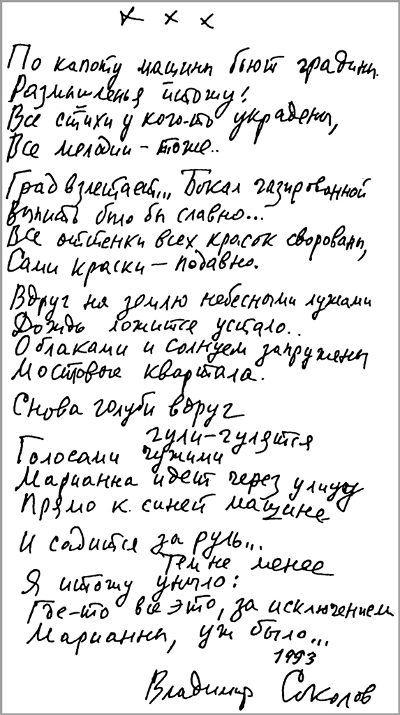 × × ×
По капоту машины бьют градины.
Размышленья итожу!
Все стихи у кого-то украдены,
Все мелодии – тоже..
Град взлетает... Бокал газированной
Выпить было бы славно...
Все оттенки всех красок сворованы,
Сами краски – подавно.
Вдруг на землю небесными лужами
Дождь ложится устало..
Облаками и солнцем запружены
Мостовые квартала.
Снова голуби вдруг
гули-гулятся
Голосами чужими
Марианна идет через улицу
Прямо к синей машине
И садится за руль...
Тем не менее
Я итожу уныло:
Где-то все это, за исключением
Марианны, уж было...
1993
Владимир Соколов